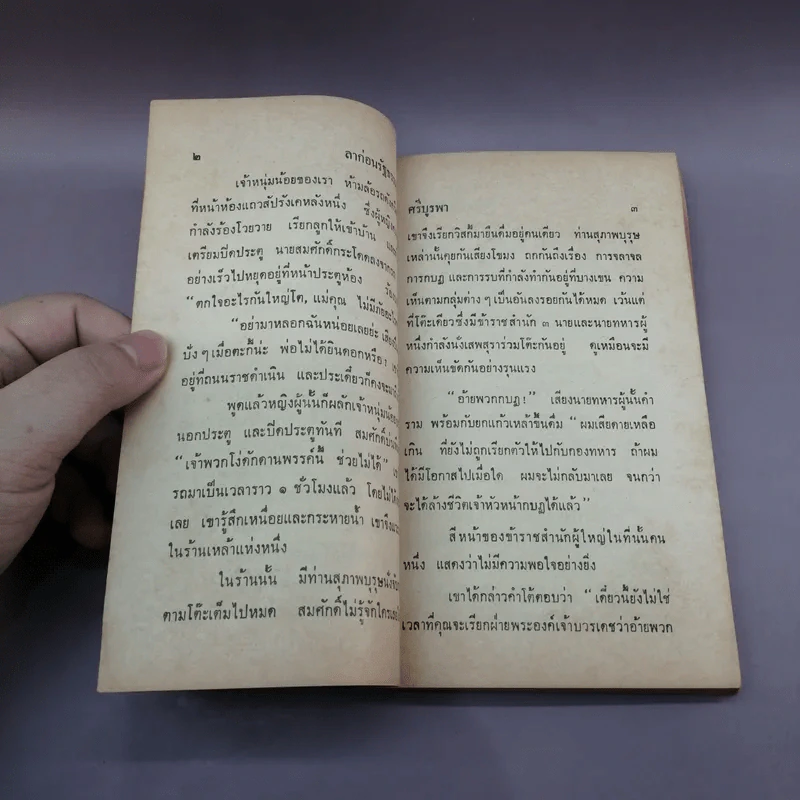 ๒ ลาก่อนรัฐธรรม
เจ้าหนุ่มน้อยของเรา ห้ามล้อรถ
ที่หน้าห้องแถวสัปรังเคหลังหนึ่ง ซึ่งผู้หญิง
กำลังร้องโวยวาย เรียกลูกให้เข้าบ้าน
เตรียมปิดประตู นายสมศักดิ์กระโดดลงจาก
อย่างเร็วไปหยุดอยู่ที่หน้าประตูห้อง
“ตกใจอะไรกันใหญ่โต, แม่คุณ ไม่มีภัย
“อย่ามาหลอกฉันหน่อยเลยย่ะ
ปัง ๆ เมื่อตะกี้น่ะ พ่อไม่ได้ยินดอกหรือ?
อยู่ที่ถนนราชดำเนิน และประเดี๋ยวก็คงจะมา
พูดแล้วหญิงผู้นั้นก็ผลักเจ้าหนุ่ม
นอกประตู และปิดประตูทันที สมศักดิ์
“เจ้าพวกโง่ดักดานพรรค์นี้ ช่วยไม่ได้”
รถมาเป็นเวลาราว ๑ ชั่วโมงแล้ว โดยไม่ได้
เลย เขารู้สึกเหนื่อยและกระหายน้ำ
ในร้านเหล้าแห่งหนึ่ง
ในร้านนั้น มีท่านสุภาพบุรุษนั่ง
ตามโต๊ะเต็มไปหมด สมศักดิ์ไม่รู้จักใคร
ศรีบูรพา ๓
เขาจึงเรียกวิสกี้มายืนดื่มอยู่คนเดียว ท่านสุภาพบุรุษ
เหล่านั้นคุยกันเสียงโขมง ถกกันถึงเรื่อง การจลาจล
การกบฏ และการรบที่กำลังทำกันอยู่ที่บางเขน ความ
เห็นตามกลุ่มต่าง ๆ เป็นอันลงรอยกันได้หมด เว้นแต่
ที่โต๊ะเดียวซึ่งมีข้าราชสำนัก ๓ นายและนายทหารผู้
หนึ่งกำลังนั่งเสพสุราร่วมโต๊ะกันอยู่ ดูเหมือนจะมี
ความเห็นขัดกันอย่างรุนแรง
“อ้ายพวกกบฏ!” เสียงนายทหารผู้นั้นคำ
ราม พร้อมกับยกแก้วเหล้าขึ้นดื่ม “ผมเสียดายเหลือ
เกิน ที่ยังไม่ถูกเรียกตัวให้ไปกับกองทหาร ถ้าผม
ได้มีโอกาสไปเมื่อใด ผมจะไม่กลับมาเลย จนกว่า
จะได้ล้างชีวิตเจ้าหัวหน้ากบฏได้แล้ว”
สีหน้าของข้าราชสำนักผู้ใหญ่ในที่นั้นคน
หนึ่ง แสดงว่าไม่มีความพอใจอย่างยิ่ง
เขาได้กล่าวคำโต้ตอบว่า “เดี๋ยวนี้ยังไม่ใช่
เวลาที่คุณจะเรียกฝ่ายพระองค์เจ้าบวรเดชว่าอ้ายพวก